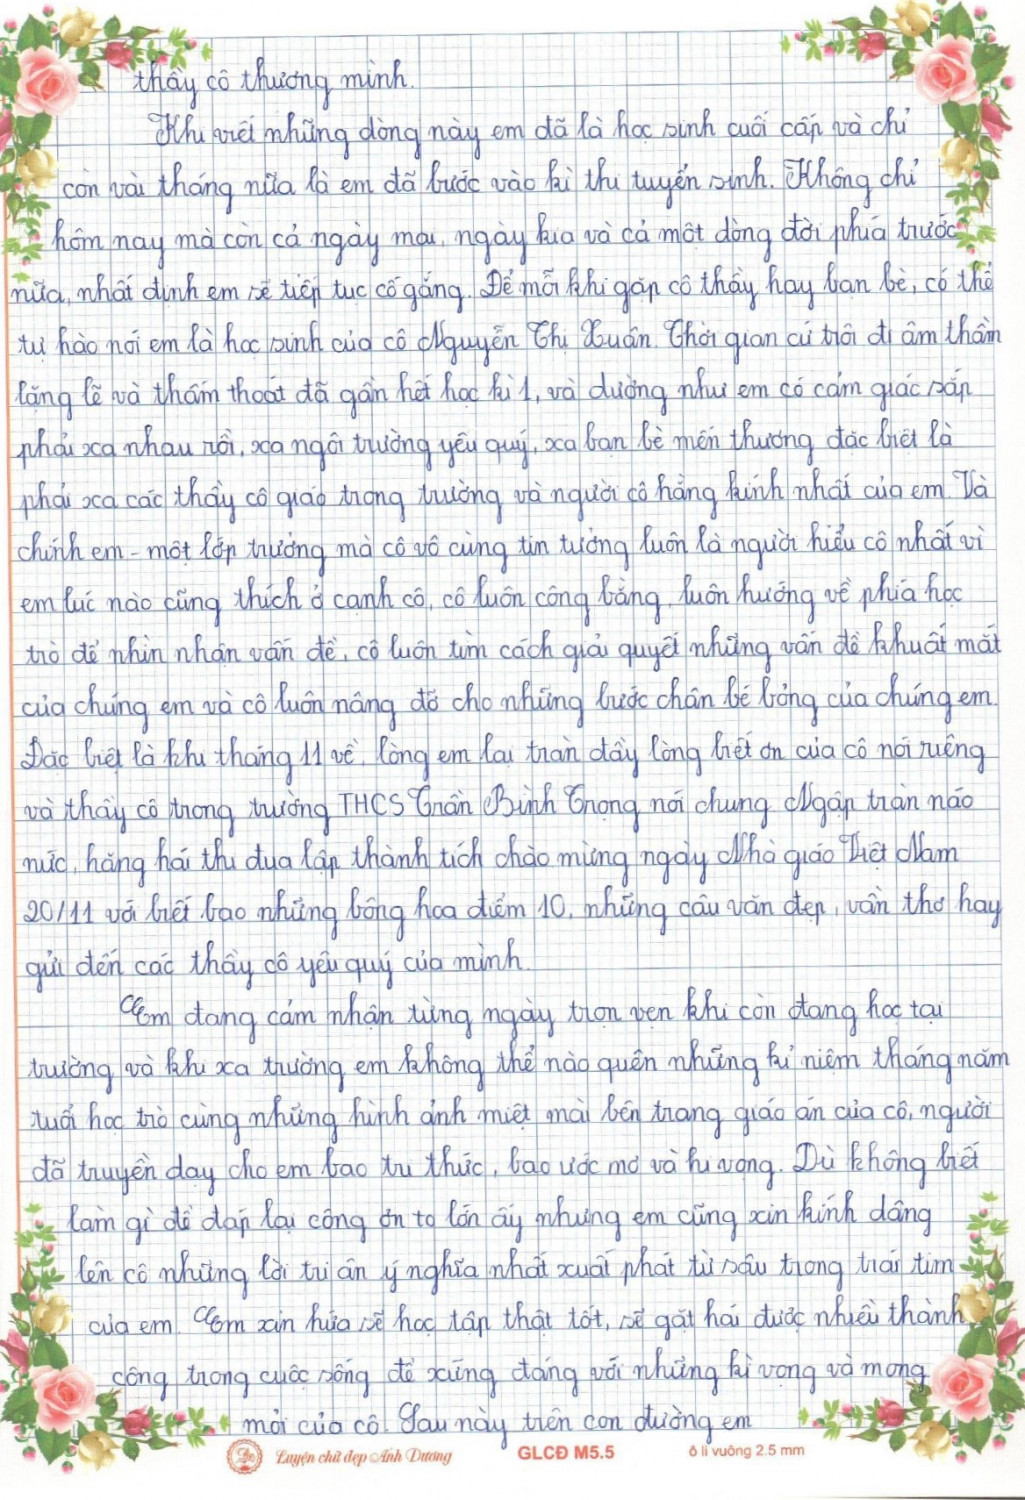 thầy cô thương mình.
Khi viết những dòng này em đã là học sinh cuối cấp và chỉ
còn vài tháng nữa là em đã bước vào kì thi tuyển sinh. Không chỉ
hôm nay mà còn cả ngày mai, ngày kia và cả một dòng đời phía trước
nữa, nhất định em sẽ tiếp tục cố gắng. Để mỗi khi gặp cô thầy hay bạn bè, có thể
tự hào nói em là học sinh của cô Nguyễn Thị Xuân. Thời gian cứ trôi đi âm thầm
lặng lẽ và thấm thoát đã gần hết học kì 1, và dường như em có cảm giác sắp
phải xa nhau rồi, xa ngôi trường yêu quý, xa bạn bè mến thương đặc biệt là
phải xa các thầy cô giáo trong trường và người cô hằng kính nhất của em. Và
chính em - một lớp trưởng mà cô vô cùng tin tưởng luôn là người hiểu cô nhất vì
em lúc nào cũng thích ở cạnh cô, cô luôn công bằng, luôn hướng về phía học
trò để nhìn nhận vấn đề, cô luôn tìm cách giải quyết những vấn đề khuất mắt
của chúng em và cô luôn nâng đỡ cho những bước chân bé bỏng của chúng em.
Đặc biệt là khi tháng 11 về, lòng em lại tràn đầy lòng biết ơn của cô nói riêng
và thầy cô trong trường THCS Trần Bình Trọng nói chung. Ngập tràn náo
nức, hăng hái thi đua lập thành tích chào mừng ngày Nhà giáo Việt Nam
20/11 với biết bao những bông hoa điểm 10, những câu văn đẹp, vần thơ hay
gửi đến các thầy cô yêu quý của mình.
Em đang cảm nhận từng ngày trọn vẹn khi còn đang học tại
trường và khi xa trường em không thể nào quên những kỉ niệm tháng năm
tuổi học trò cùng những hình ảnh miệt mài bên trang giáo án của cô, người
đã truyền dạy cho em bao tri thức, bao ước mơ và hi vọng. Dù không biết
làm gì để đáp lại công ơn to lớn ấy nhưng em cũng xin kính dâng
lên cô những lời tri ân ý nghĩa nhất xuất phát từ sâu trong trái tim
của em. Em xin hứa sẽ học tập thật tốt, sẽ gặt hái được nhiều thành
công trong cuộc sống để xứng đáng với những kì vọng và mong
mỏi của cô. Sau này trên con đường em
Luyện chữ đẹp Ánh Dương GLCĐ M5.5 ô li vuông 2.5 mm